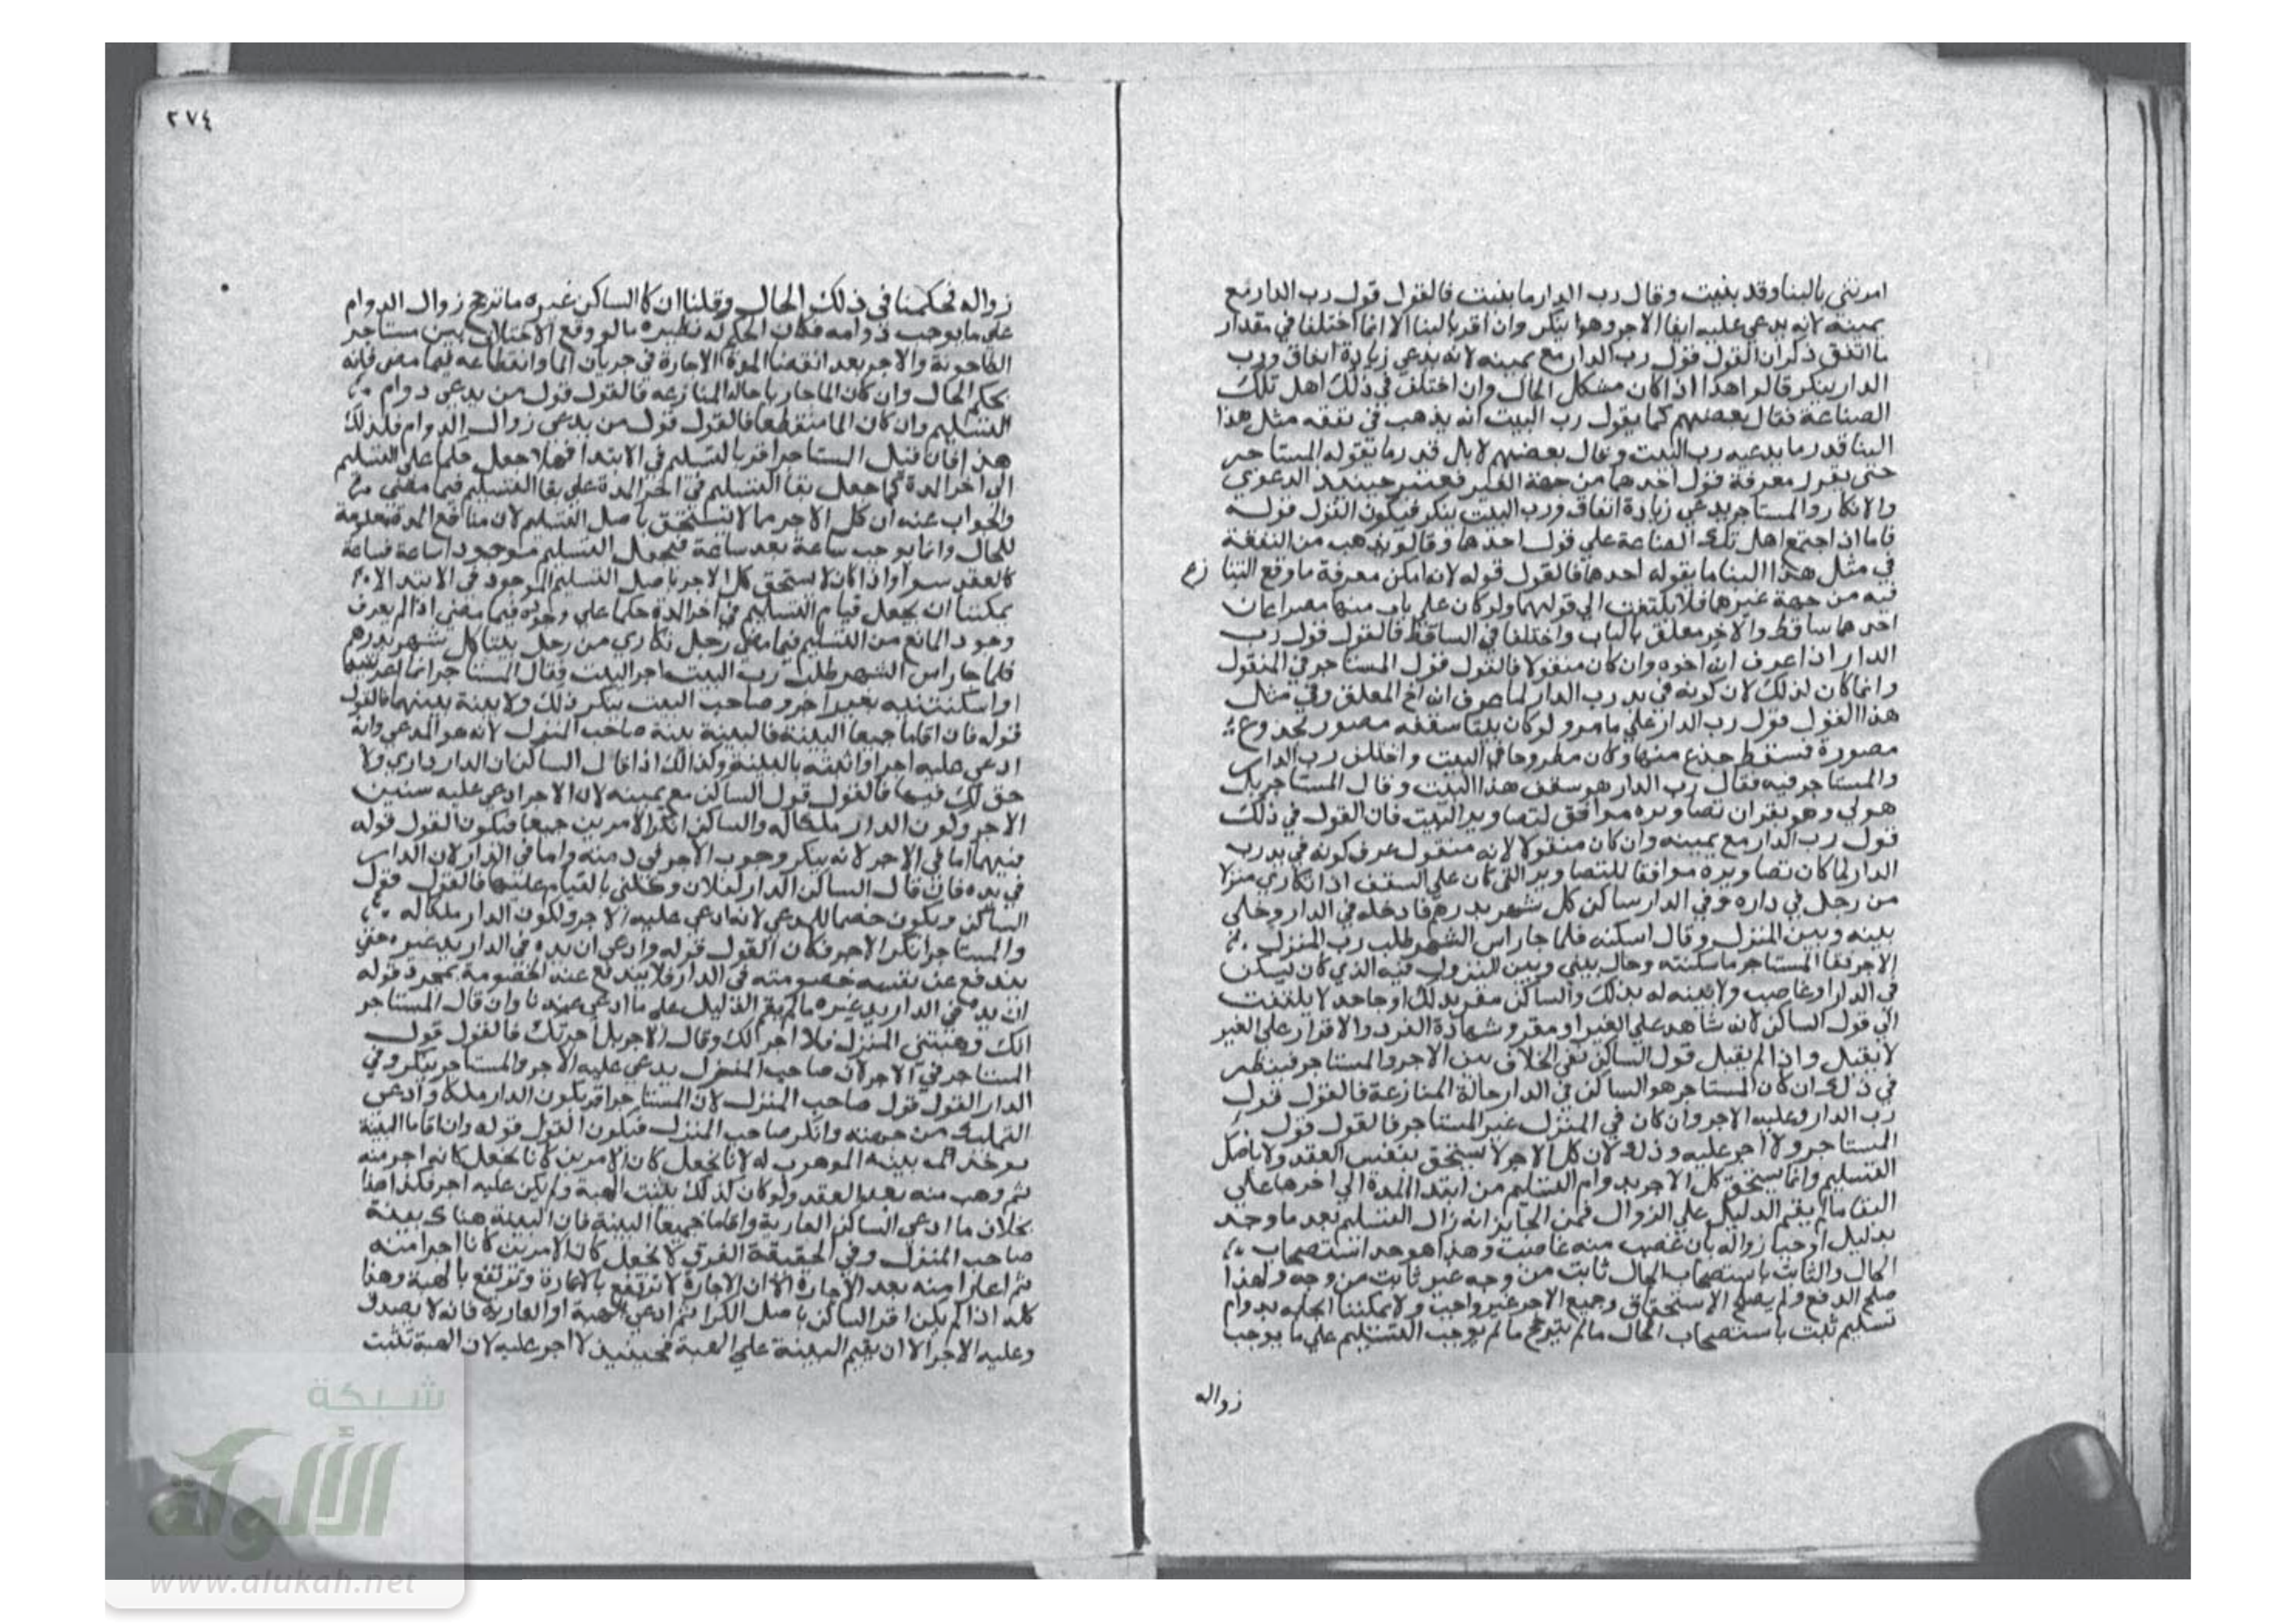 امرتني بالبنا وقد بنيت وقال رب الدار ما بنيت فالقول قول رب الدار مع
يمينه لانه يدعي عليه ايفا الاجر وهو ينكر وان اقر بالبنا الا انما اختلفا في مقدار
ما انفق ذكر ان القول قول رب الدار مع يمينه لانه يدعي زيادة انفاق ورب
الدار ينكر قالوا هذا اذا كان مشكل الحال وان اختلف في ذلك اهل تلك
الصناعة فقال بعضهم كما يقول رب البيت انه يذهب في نفقه مثل هذا
البنا قدر ما يدعيه رب البيت وقال بعضهم لا بل قدر ما يقوله المستاجر
حتى معرفة قول احدهما من جهة الغير فيعتبر حينئذ الدعوي
والانكار والمستاجر يدعي زيادة انفاق ورب البيت ينكر فيكون القول قوله
فاما اذا اجتمع اهل تلك الصناعة علي قول احدهما وقالوا يذهب من النفقة
في مثل هذا البنا ما يقوله احدهما فالقول قوله لانه امكن معرفة ما وقع التنازع
فيه من جهة غيرهما فلا يلتفت الي قولهما ولو كان علي باب منها مصراعان
احدهما ساقط والاخر معلق بالباب واختلفا في الساقط فالقول قول رب
الدار اذا عرف انه اخوه وان كان منقولا فالقول قول المستاجر في المنقول
وانما كان لذلك لان كونه في يد رب الدار لما عرف انه اخ المعلق وفي مثل
هذا القول قول رب الدار علي ما مر ولو كان بيتا سقفه مصور بجذوع
مصورة فسقط جذع منها وكان مطروحا في البيت واختلف رب الدار
والمستاجر فيه فقال رب الدار هو سقف هذا البيت وقال المستاجر بل
هو لي وهو يقر ان تصاويره موافق لتصاوير البيت فان القول في ذلك
قول رب الدار مع يمينه وان كان منقولا لانه منقول عرف كونه في يد رب
الدار لما كان تصاويره موافقا للتصاوير التي كان علي السقف اذا تكاري منزلا
من رجل في داره وفي الدار ساكن كل شهر بدرهم فادخله في الدار وخلي
بينه وبين المنزل وقال اسكنه فلما جا راس الشهر طلب رب المنزل
الاجر فقا المستاجر ما سكنته وحال بيني وبين النزول فيه الذي كان يسكن
في الدار او غاصب ولا بينه له بذلك والساكن مقر بذلك او جاحد لا يلتفت
الي قول الساكن لانه شاهد علي الغير او مقر وشهادة الفرد والاقرار علي الغير
لا يقبل واذا لم يقبل قول الساكن بقي الخلاف بين الاجر والمستاجر فينظر
في ذلك ان كان المستاجر هو الساكن في الدار حالة المنازعة فالقول قول
رب الدار وعليه الاجر وان كان في المنزل غير المستاجر فالقول قول
المستاجر ولا اجر عليه وذلك لان كل الاجر لا يستحق بنفس العقد ولا باصل
التسليم وانما يستحق كل الاجر بدوام التسليم من ابتدا المدة الي اخرها علي
البقا ما لم يقم الدليل علي الزوال فمن الجايز انه زال التسليم بعد ما وجد
بدليل اوجب زواله بان غصب منه غاصب وهذا هو حد استصحاب
الحال والثابت باستصحاب الحال ثابت من وجه غير ثابت من وجه ولهذا
صلح الدفع ولم يصلح الاستحقاق وجميع الاجر غير واجب ولا يمكننا بدوام
تسليم ثبت باستصحاب الحال ما لم يترجح ما لم يوجب التسليم علي ما يوجب
زواله
٢٧٤
زواله فحكمنا في ذلك الحال وقلنا ان كا الساكن غيره ما ترجح زوال الدوام
علي ما يوجب دوامه فكان الحكم له نظيره ما لو وقع الاختلاف بين مستاجر
الطاحونة والاجر بعد انقضا المدة الاجارة في جريان الما وانقطاعه فيما مضى فانه
يحكم الحال وان كان الما جاريا حالة المنازعه فالقول قول من يدعي دوام
التسليم وان كان الما منقطعا فالقول قول من يدعي زوال الدوام فلذلك
هذا فان قيل المستاجر اقر بالتسليم في الابتدا فهلا جعل حكما علي التسليم
الي اخر المدة كما جعل بقا التسليم في اخر المدة علي بقا التسليم فيما مضى
والجواب عنه ان كل الاجر ما لا يستحق باصل التسليم لان منافع المدة معدومة
للحال وانما يوجب ساعة بعد ساعة فيجعل التسليم موجودا ساعة فساعة
كالعقد سوا واذا كان لا يستحق كل الاجر باصل التسليم الموجود في الابتدا لا
يمكننا ان يجعل قيام التسليم في اخر المدة حكما علي وجوده فيما مضى اذا لم يعرف
وجود المانع من التسليم فيما مضى رجل تكاري من رجل بيتا كل شهر بدرهم
فلما جا راس الشهر طلب رب البيت اجر البيت وقال المستاجر انما اعرتنيها
او اسكنتنيه بغير اجر وصاحب البيت ينكر ذلك ولا بينة بينهما فالقول
قوله فان اقاما جميعا البينة فالبينة بينة صاحب المنزل لانه هو المدعي وانه
ادعي عليه اجرا واثبته بالبينة وكذلك اذا قال الساكن ان الدار داري ولا
حق لك فيها فالقول قول الساكن مع يمينه لان الاجر ادعي عليه شيئين
الاجر وكون الدار ملكا له والساكن انكر الامرين جميعا فيكون القول قوله
فيهما اما في الاجر لانه ينكر وجوب الاجر في ذمته واما في الدار لان الدار
في يده فان قال الساكن الدار لفلان وكلني بالقيام عليها فالقول قول
الساكن ويكون خصما للمدعي لانه ادعي عليه الاجر ولكون الدار ملكا له
والمستاجر انكر الاجر فكان القول قوله وادعي ان يده في الدار يد غيره حتي
يندفع عن نفسه خصومته في الدار فلا يندفع عنه الخصومة بمجرد قوله
ان يده في الدار يد غيره ما لم يقم الدليل علي ما ادعي عندنا وان قال المستاجر
انك وهبتني المنزل فلا اجر لك وقال الاجر بل اجرتك فالقول قول
المستاجر في الاجر لان صاحب المنزل يدعي عليه الاجر والمستاجر ينكر وفي
الدار القول قول صاحب المنزل لان المستاجر اقر بكون الدار ملكا وادعي
التمليك من جهته وانكر صاحب المنزل فيكون القول قوله وان اقاما البينة
يوخذ بينة الموهوب له لانا نجعل كان الامرين كانا نجعل كانه اجر منه
ثم وهب منه بعد العقد ولو كان كذلك يثبت الهبة ولم يكن عليه اجر فكذا هذا
بخلاف ما ادعي الساكن العارية واقاما جميعا البينة فان البينة هناك بينة
صاحب المنزل وفي الحقيقة الفرق لا نجعل كان الامرين كانا اجرا منه
ثم اعارا منه بعد الاجارة الا ان الاجارة لا ترتفع بالاعارة وترتفع بالهبة وهذا
كله اذا لم يكن اقر الساكن باصل الكرا ثم ادعي الهبة او العارية فانه لا يصدق
وعليه الاجر الا ان يقيم البينة علي الهبة فحينئذ لا اجر عليه لان الهبة تثبت
شبكة
الألوكة
www.alukah.net